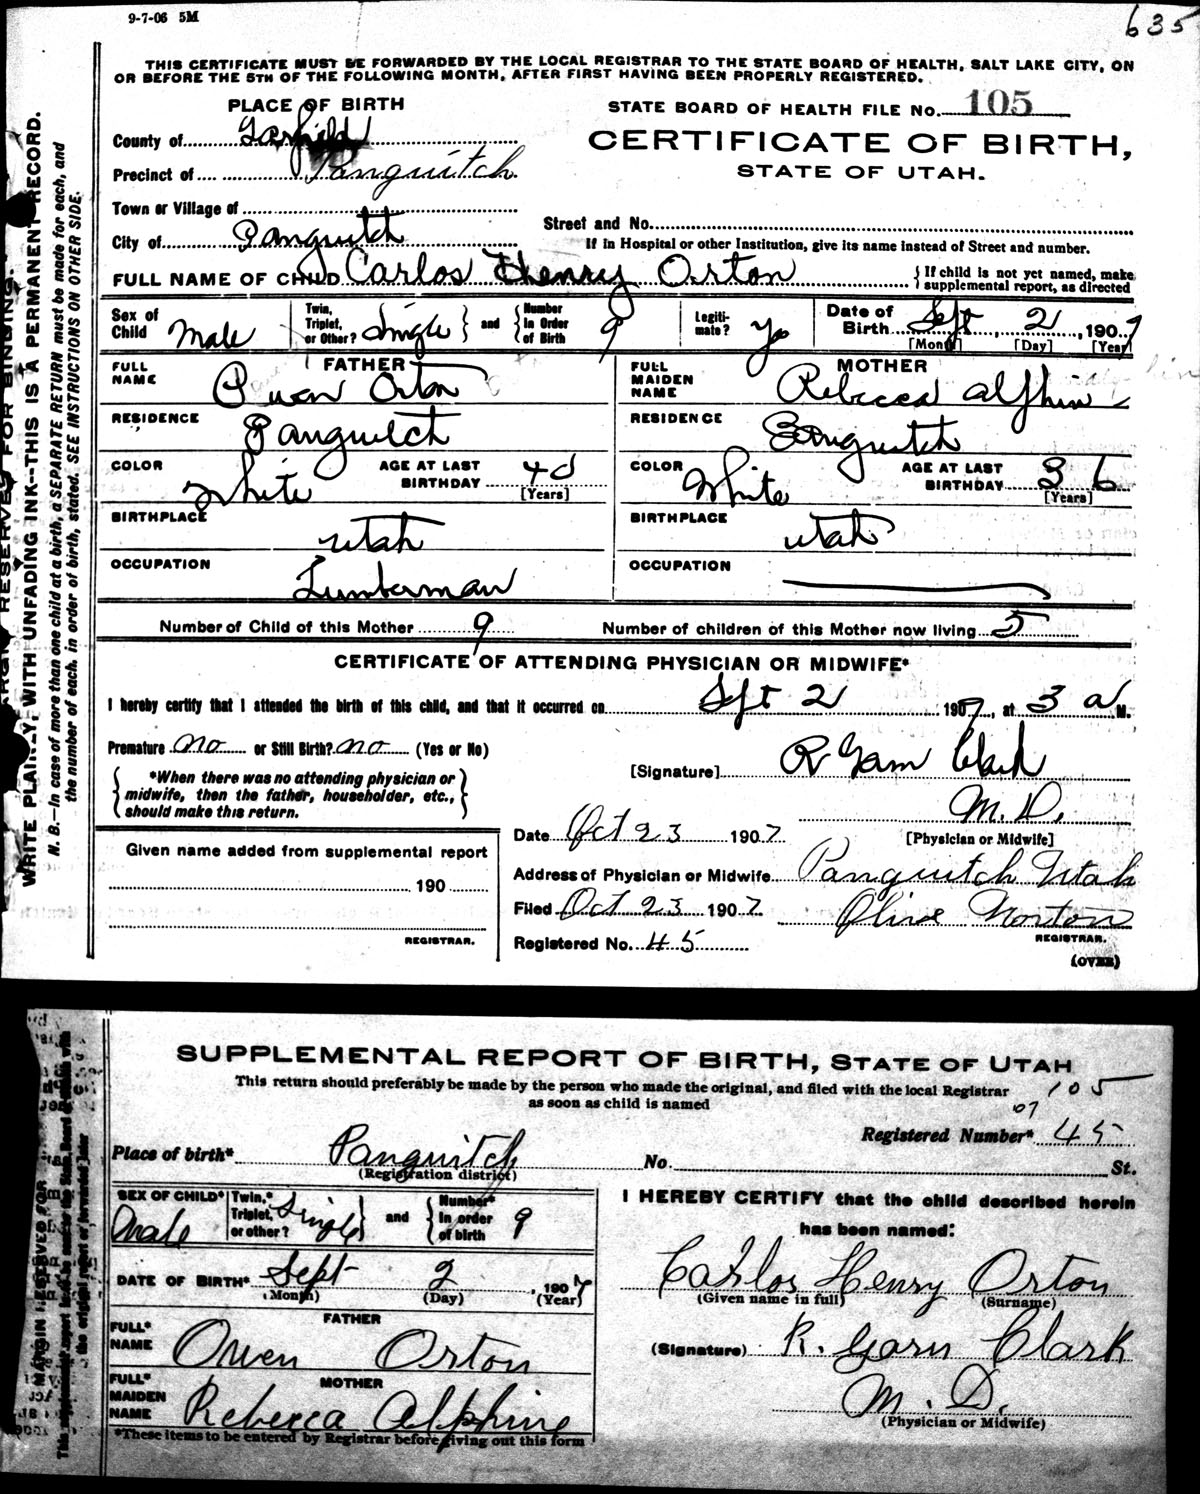 9-7-06 5M
635
THIS CERTIFICATE MUST BE FORWARDED BY THE LOCAL REGISTRAR TO THE STATE BOARD OF HEALTH, SALT LAKE CITY, ON
OR BEFORE THE 5TH OF THE FOLLOWING MONTH, AFTER FIRST HAVING BEEN PROPERLY REGISTERED.
PLACE OF BIRTH
STATE BOARD OF HEALTH FILE No. 105
County of Garfield
CERTIFICATE OF BIRTH,
STATE OF UTAH.
Precinct of Panguitch
Town or Village of
Street and No.
City of Panguitch
If in Hospital or other Institution, give its name instead of Street and number.
FULL NAME OF CHILD Carlos Henry Orton
{ If child is not yet named, make supplemental report, as directed
Sex of Child Male
Twin, Triplet, or Other? Single } and { Number in Order of Birth 9
Legitimate? Yes
Date of Birth Sept, 2, 1907
[Month] [Day] [Year]
FATHER
FULL NAME Owen Orton
MOTHER
FULL MAIDEN NAME Rebecca Alphine
RESIDENCE Panguitch
RESIDENCE Panguitch
COLOR White AGE AT LAST BIRTHDAY 40 [Years]
COLOR White AGE AT LAST BIRTHDAY 36 [Years]
BIRTHPLACE Utah
BIRTHPLACE Utah
OCCUPATION Lumberman
OCCUPATION
Number of Child of this Mother 9 Number of children of this Mother now living 5
CERTIFICATE OF ATTENDING PHYSICIAN OR MIDWIFE*
I hereby certify that I attended the birth of this child, and that it occurred on Sept 2 1907, at 3 a M.
Premature no or Still Birth? no (Yes or No)
{ *When there was no attending physician or
midwife, then the father, householder, etc.,
should make this return. }
[Signature] R Garn Clark
M. D.
[Physician or Midwife]
Date Oct 23 1907
Given name added from supplemental report
190
REGISTRAR.
Address of Physician or Midwife Panguitch Utah
Filed Oct 23 1907 Olive Norton
REGISTRAR.
Registered No. 45
(OVER)
WRITE PLAINLY, WITH UNFADING INK--THIS IS A PERMANENT RECORD.
N. B.—In case of more than one child at a birth, a SEPARATE RETURN must be made for each, and
the number of each, in order of birth, stated. SEE INSTRUCTIONS ON OTHER SIDE.
SUPPLEMENTAL REPORT OF BIRTH, STATE OF UTAH
This return should preferably be made by the person who made the original, and filed with the local Registrar
as soon as child is named
105
07
Registered Number* 45
Place of birth* Panguitch
(Registration district)
No. St.
SEX OF CHILD* Male
Twin,* Triplet, or other? Single } and { Number* in order of birth 9
I HEREBY CERTIFY that the child described herein
has been named:
DATE OF BIRTH* Sept 2, 1907
(Month) (Day) (Year)
Carlos Henry Orton
(Given name in full) (Surname)
FATHER
FULL* NAME Owen Orton
(Signature) R. Garn Clark
M. D.
(Physician or Midwife)
MOTHER
FULL* MAIDEN NAME Rebecca Alphine
*These items to be entered by Registrar before giving out this form